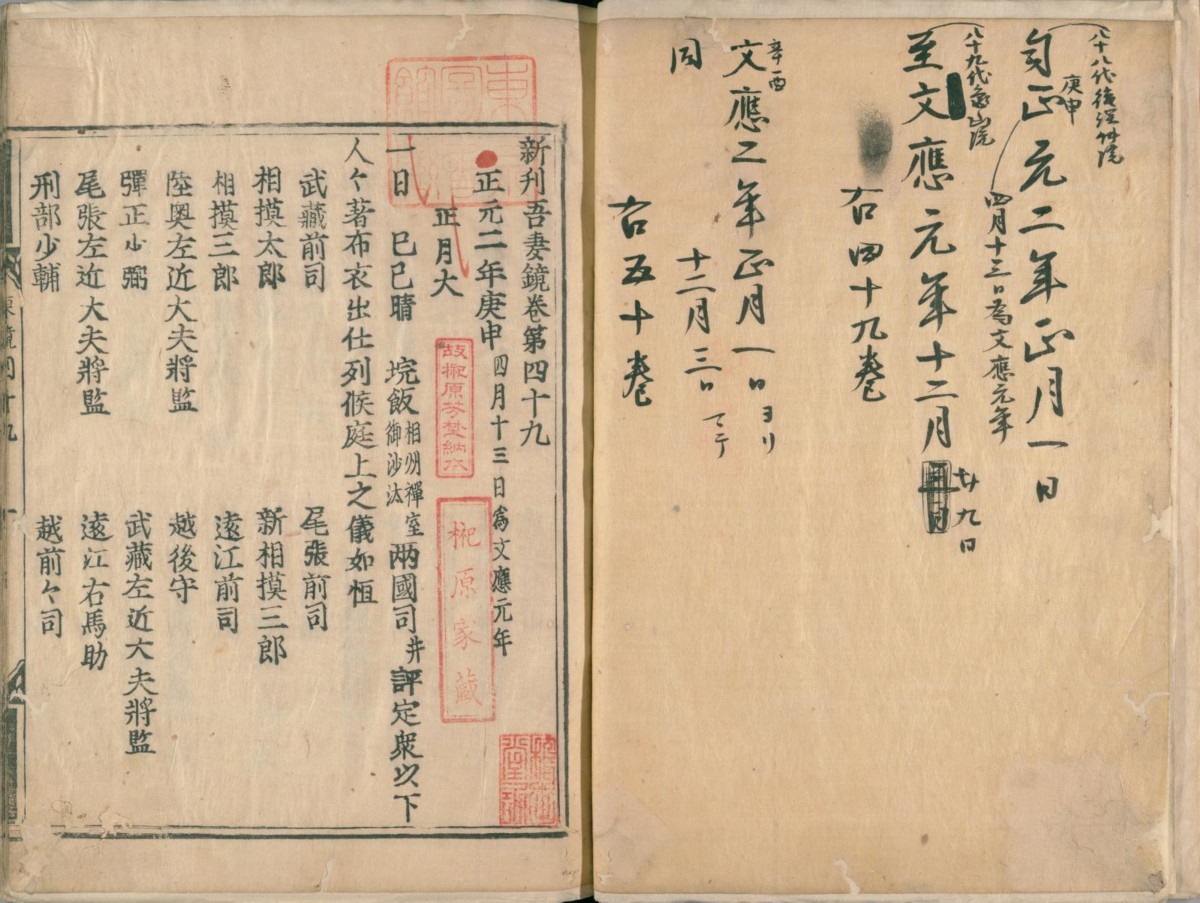 八十八代後深草院
庚申
自正元二年正月一日
四月十三日為文應元年
八十九代龜山院
至文應元年十二月
廿九日
右四十九卷
辛酉
文應二年正月一日ヨリ
同 十二月三日マテ
右五十卷
新刊吾妻鏡卷第四十九
正元二年庚申四月十三日爲文應元年
正月大
一日 己巳晴 垸飯相州禪室御沙汰兩國司并評定衆以下
人々著布衣出仕列候庭上之儀如恒
武藏前司 尾張前司
相摸太郎 新相摸三郎
相摸三郎 遠江前司
陸奥左近大夫將監 越後守
彈正少弼 武藏左近大夫將監
尾張左近大夫將監 遠江右馬助
刑部少輔 越前々司
故榊原芳埜納本
榊原家藏